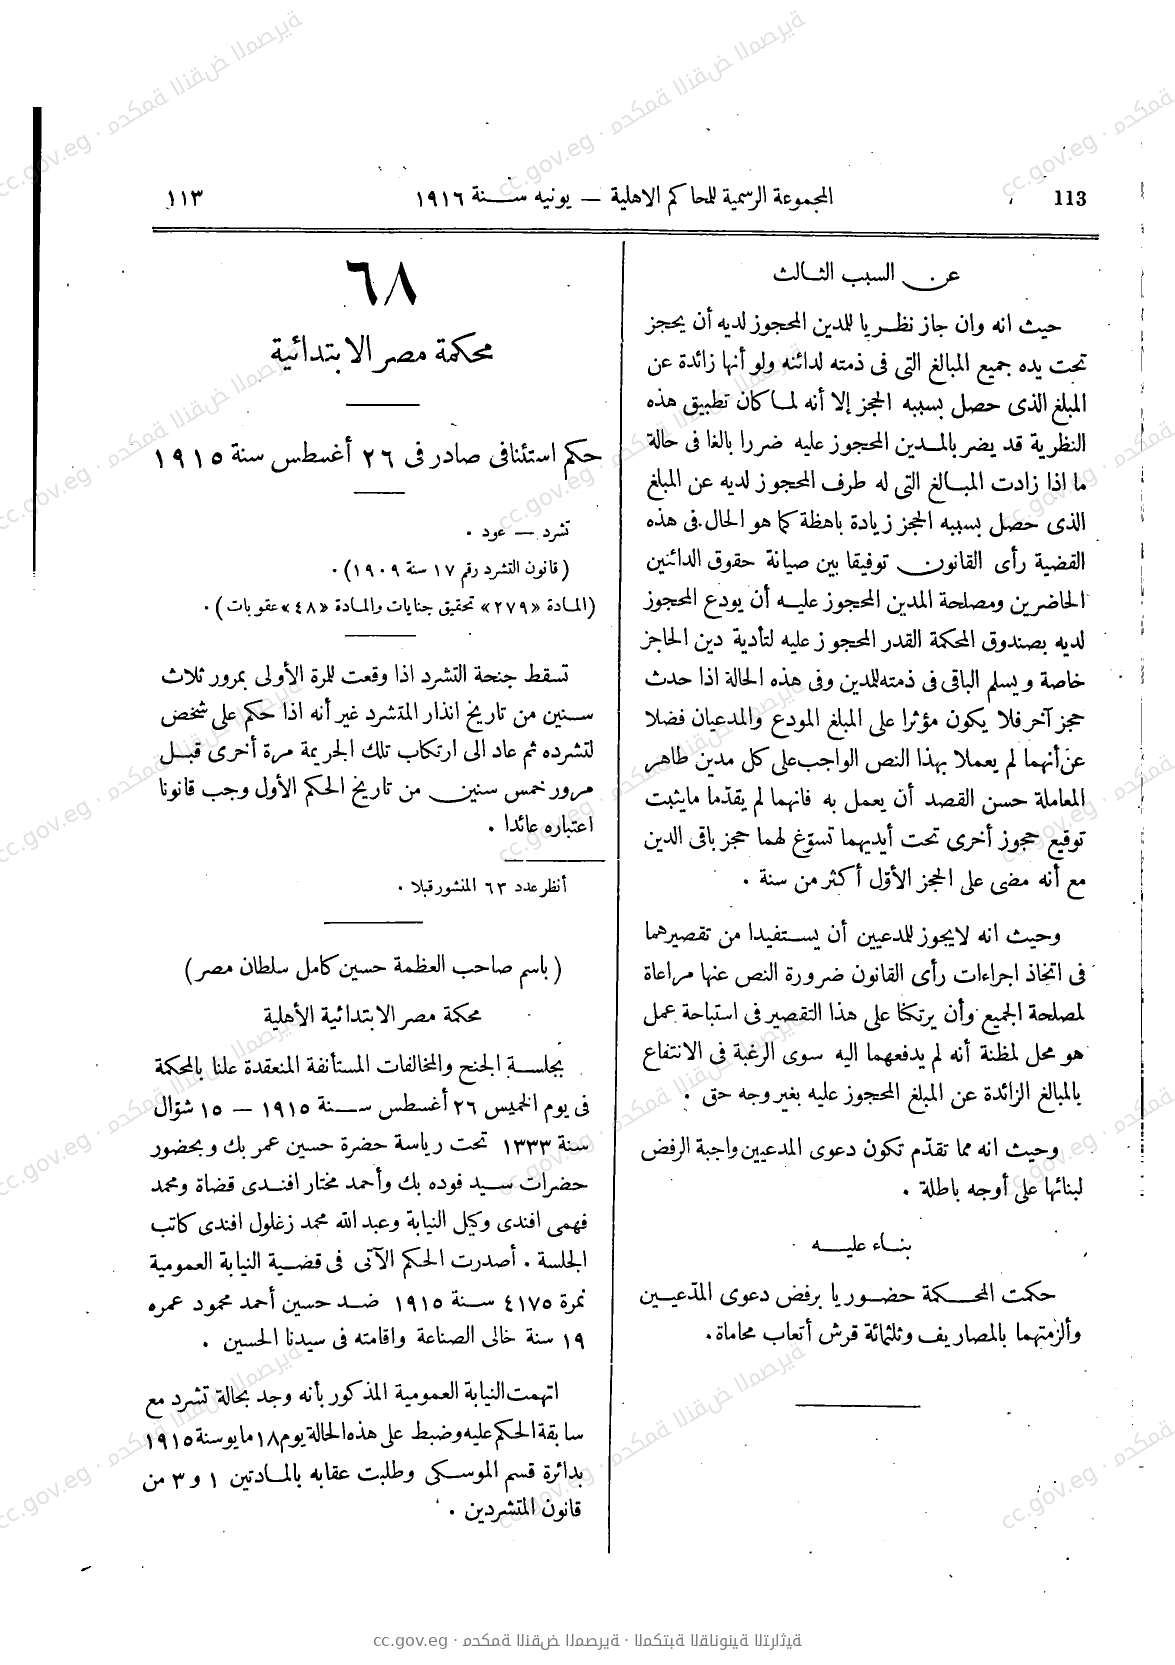 113
المجموعة الرسمية للمحاكم الاهلية — يونيه سنة ١٩١٦
١١٣
عن السبب الثالث
حيث انه وان جاز نظريا للمدين المحجوز لديه أن يحجز
تحت يده جميع المبالغ التى فى ذمته لدائنه ولو أنها زائدة عن
المبلغ الذى حصل بسببه الحجز إلا أنه لما كان تطبيق هذه
النظرية قد يضر بالمدين المحجوز عليه ضررا بالغا فى حالة
ما اذا زادت المبالغ التى له طرف المحجوز لديه عن المبلغ
الذى حصل بسببه الحجز زيادة باهظة كما هو الحال فى هذه
القضية رأى القانون توفيقا بين صيانة حقوق الدائنين
الحاضرين ومصلحة المدين المحجوز عليه أن يودع المحجوز
لديه بصندوق المحكمة القدر المحجوز عليه لتأدية دين الحاجز
خاصة ويسلم الباقى فى ذمته للمدين وفى هذه الحالة اذا حدث
حجز آخر فلا يكون مؤثرا على المبلغ المودع والمدعيان فضلا
عن أنهما لم يعملا بهذا النص الواجب على كل مدين طاهر
المعاملة حسن القصد أن يعمل به فانهما لم يقدّما مايثبت
توقيع حجوز أخرى تحت أيديهما تسوّغ لهما حجز باقى الدين
مع أنه مضى على الحجز الأوّل أكثر من سنة .
وحيث انه لايجوز للمدعيين أن يستفيدا من تقصيرهما
فى اتخاذ اجراءات رأى القانون ضرورة النص عنها مراعاة
لمصلحة الجميع وأن يرتكنا على هذا التقصير فى استباحة عمل
هو محل لمظنة أنه لم يدفعهما اليه سوى الرغبة فى الانتفاع
بالمبالغ الزائدة عن المبلغ المحجوز عليه بغير وجه حق .
وحيث انه مما تقدّم تكون دعوى المدعيين واجبة الرفض
لبنائها على أوجه باطلة .
بناء عليه
حكمت المحكمة حضوريا برفض دعوى المدّعيين
وألزمتهما بالمصاريف وثلثمائة قرش أتعاب محاماة.
٦٨
محكمة مصر الابتدائية
حكم استئنافى صادر فى ٢٦ أغسطس سنة ١٩١٥
تشرد — عود .
( قانون التشرد رقم ١٧ سنة ١٩٠٩) .
(المادة «٢٧٩» تحقيق جنايات والمادة «٤٨» عقوبات) .
تسقط جنحة التشرد اذا وقعت للمرة الأولى بمرور ثلاث
سنين من تاريخ انذار المتشرد غير أنه اذا حكم على شخص
لتشرده ثم عاد الى ارتكاب تلك الجريمة مرة أخرى قبل
مرور خمس سنين من تاريخ الحكم الأول وجب قانونا
اعتباره عائدا .
أنظر عدد ٦٣ المنشور قبلا .
( باسم صاحب العظمة حسين كامل سلطان مصر)
محكمة مصر الابتدائية الأهلية
بجلسة الجنح والمخالفات المستأنفة المنعقدة علنا بالمحكمة
فى يوم الخميس ٢٦ أغسطس سنة ١٩١٥ — ١٥ شوّال
سنة ١٣٣٣ تحت رياسة حضرة حسين عمر بك وبحضور
حضرات سيد فوده بك وأحمد مختار افندى قضاة ومحمد
فهمى افندى وكيل النيابة وعبد الله محمد زغلول افندى كاتب
الجلسة . أصدرت الحكم الآتى فى قضية النيابة العمومية
نمرة ٤١٧٥ سنة ١٩١٥ ضد حسين أحمد محمود عمره
١٩ سنة خالى الصناعة واقامته فى سيدنا الحسين .
اتهمت النيابة العمومية المذكور بأنه وجد بحالة تشرد مع
سابقة الحكم عليه وضبط على هذه الحالة يوم ١٨ مايو سنة ١٩١٥
بدائرة قسم الموسكى وطلبت عقابه بالمادتين ١ و ٣ من
قانون المتشردين .
cc.gov.eg · محكمة النقض المصرية · المكتبة القانونية التراثية